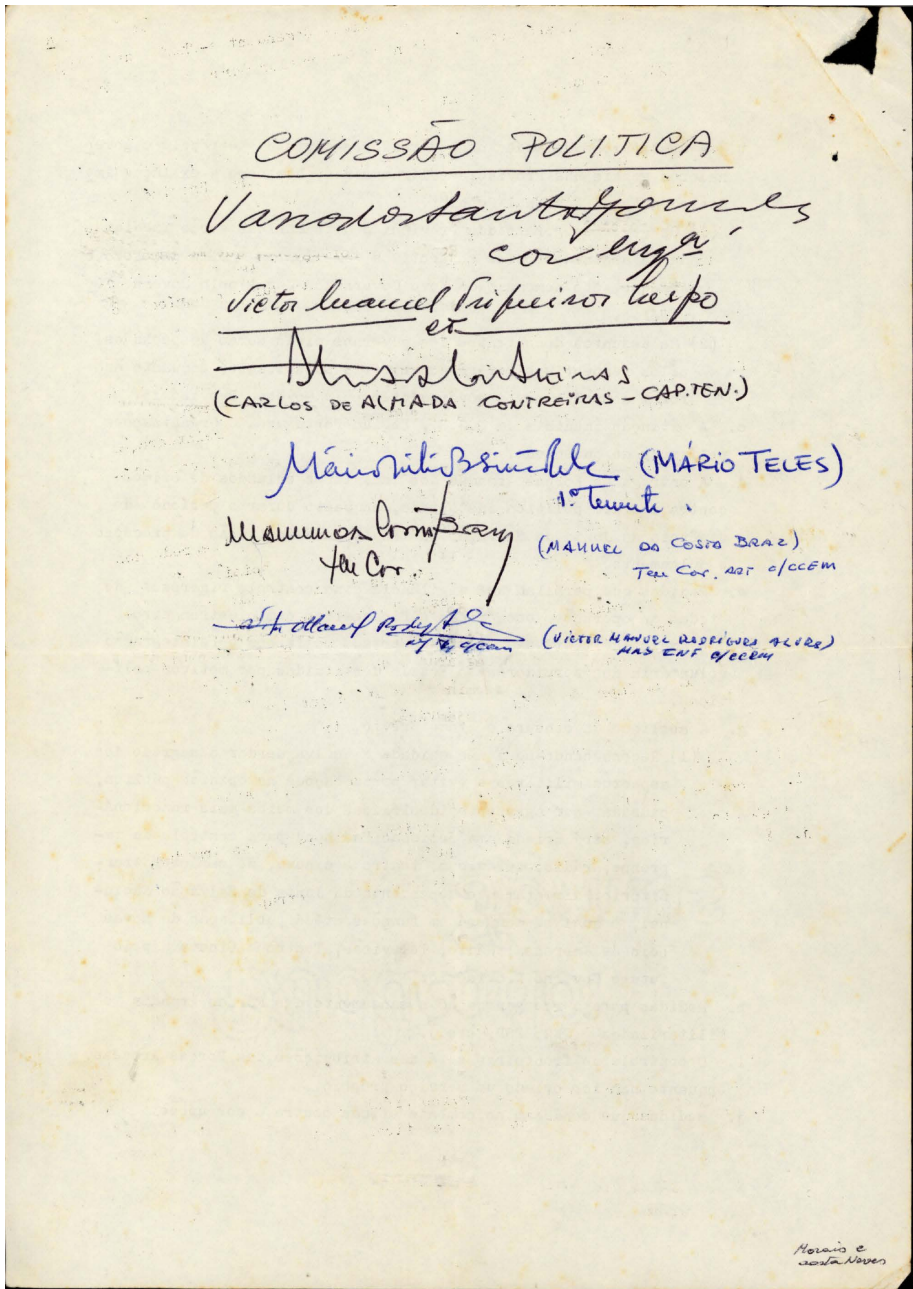 COMISSÃO POLITICA
Vasco dos Santos Gonçalves
cor engº
Victor Manuel Trigueiros Crespo
(CARLOS DE ALMADA CONTREIRAS - CAP.TEN.)
(MÁRIO TELES)
1º Tenente
Manuel da Costa Braz
Ten Cor.
(MANUEL DA COSTA BRAZ)
Ten Cor. ART c/CCEM
Victor Manuel Rodrigues Alves
(VICTOR MANUEL RODRIGUES ALVES)
MAJ INF c/CCEM
Morais e
Costa Neves